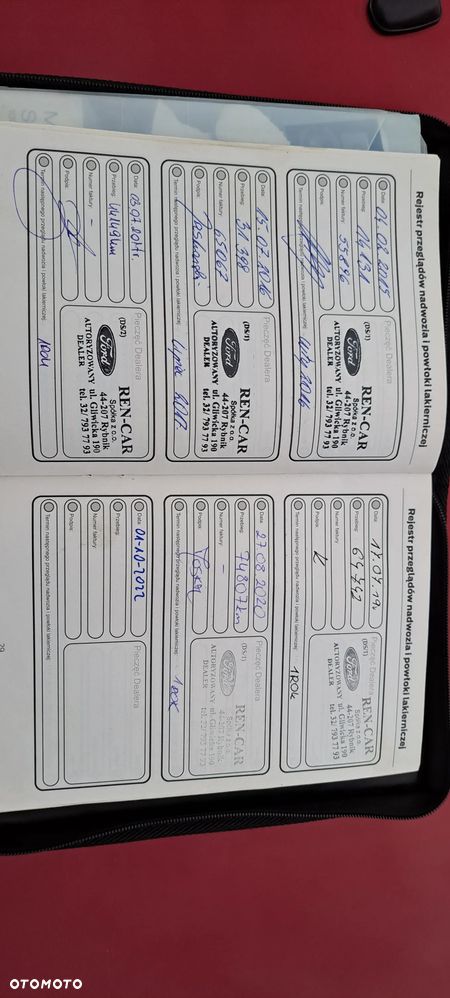 Rejestr przeglądów nadwozia i powłoki lakierniczej
Data
04.08.2015
Przebieg
14131
Numer faktury
Podpis
Termin następnego przeglądu nadwozia i powłoki lakierniczej
2016
Pieczęć Dealera
(DS/1)
REN-CAR
Spółka z o.o.
44-207 Rybnik
Ford
AUTORYZOWANY
DEALER
ul. Gliwicka 190
tel. 32/ 793 77 93
Data
05.07.2016
Przebieg
31.398
Numer faktury
Podpis
Termin następnego przeglądu nadwozia i powłoki lakierniczej
Lipiec 2017
Pieczęć Dealera
(DS/1)
REN-CAR
Spółka z o.o.
44-207 Rybnik
Ford
AUTORYZOWANY
DEALER
ul. Gliwicka 190
tel. 32/ 793 77 93
Data
Przebieg
Numer faktury
-
Podpis
Termin następnego przeglądu nadwozia i powłoki lakierniczej
Pieczęć Dealera
(DS/2)
REN-CAR
Spółka z o.o.
44-207 Rybnik
Ford
AUTORYZOWANY
DEALER
ul. Gliwicka 190
tel. 32/ 793 77 93
Rejestr przeglądów nadwozia i powłoki lakierniczej
Data
17.07.19.
Przebieg
64.742
Numer faktury
Podpis
Termin następnego przeglądu nadwozia i powłoki lakierniczej
1 ROK
Pieczęć Dealera
(DS/1)
REN-CAR
Spółka z o.o.
44-207 Rybnik
Ford
AUTORYZOWANY
DEALER
ul. Gliwicka 190
tel. 32/ 793 77 93
Data
27.08.2020
Przebieg
74807km
Numer faktury
-
Podpis
Termin następnego przeglądu nadwozia i powłoki lakierniczej
1 ROK
Pieczęć Dealera
(DS/1)
REN-CAR
Spółka z o.o.
44-207 Rybnik
Ford
AUTORYZOWANY
DEALER
ul. Gliwicka 190
tel. 32/ 793 77 93
Data
01-10-2022
Przebieg
Numer faktury
Podpis
Termin następnego przeglądu nadwozia i powłoki lakierniczej
Pieczęć Dealera
29
OTOMOTO